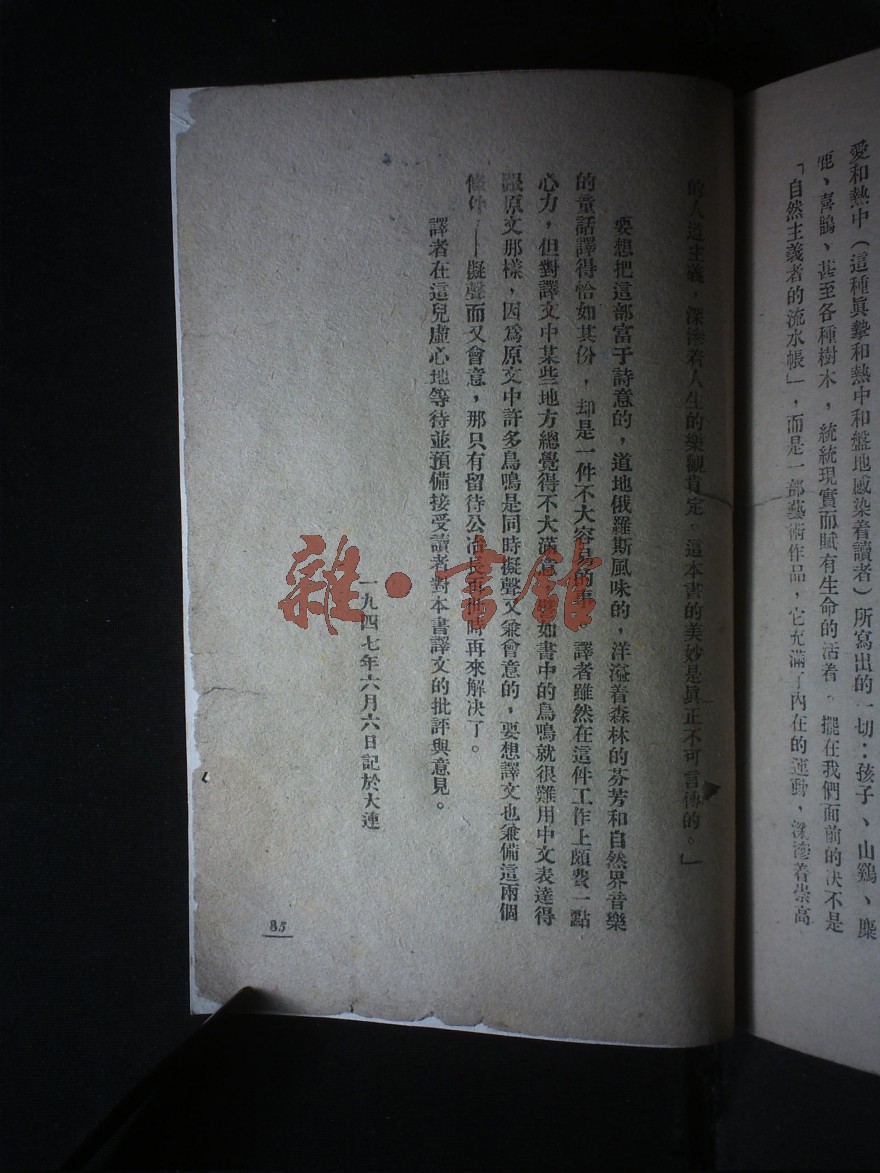 愛和熱中(這種眞摯和熱中和盤地感染着讀者)所寫出的一切：孩子、山鷄、麋
鹿、喜鵲、甚至各種樹木，統統現實而賦有生命的活着。擺在我們面前的决不是
「自然主義者的流水帳」，而是一部藝術作品，它充滿了內在的運動，深滲着崇高
的人道主義，深滲着人生的樂觀肯定。這本書的美妙是眞正不可言傳的。」
要想把這部富于詩意的，道地俄羅斯風味的，洋溢着森林的芬芳和自然界音樂
的童話譯得恰如其份，却是一件不大容易的事。譯者雖然在這件工作上頗費一點
心力，但對譯文中某些地方總覺得不大滿意，譬如書中的鳥鳴就很難用中文表達得
跟原文那樣，因爲原文中許多鳥鳴是同時擬聲又兼會意的，要想譯文也兼備這兩個
條件——擬聲而又會意，那只有留待公冶長再世時再來解決了。
譯者在這兒虛心地等待並預備接受讀者對本書譯文的批評與意見。
一九四七年六月六日記於大連
85
雜·書館